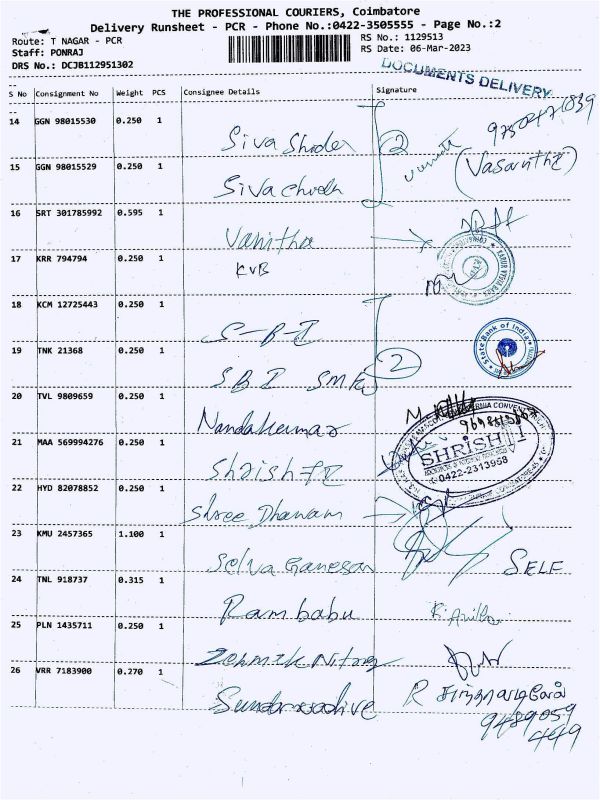 THE PROFESSIONAL COURIERS, Coimbatore
Delivery Runsheet - PCR - Phone No.:0422-3505555 - Page No.:2
Route: T NAGAR - PCR
RS No.: 1129513
Staff: PONRAJ
RS Date: 06-Mar-2023
DRS No.: DCJB112951302
DOCUMENTS DELIVERY
S No Consignment No Weight PCS Consignee Details Signature
14 GGN 98015530 0.250 1
2
(Vasantha)
15 GGN 98015529 0.250 1
16 SRT 301785992 0.595 1 Vanitha
17 KRR 794794 0.250 1 KVB
18 KCM 12725443 0.250 1 S-B-I
State Bank of India
19 TNK 21368 0.250 1 SBI
2
20 TVL 9809659 0.250 1 Nandakumar
21 MAA 569994276 0.250 1
SHRISHTI
0422-2313958
22 HYD 82078852 0.250 1 Shree Dhanam
23 KMU 2457365 1.100 1 Selva Ganesan
SELF
24 TNL 918737 0.315 1 Rambabu
25 PLN 1435711 0.250 1
26 VRR 7183900 0.270 1
9489059
449